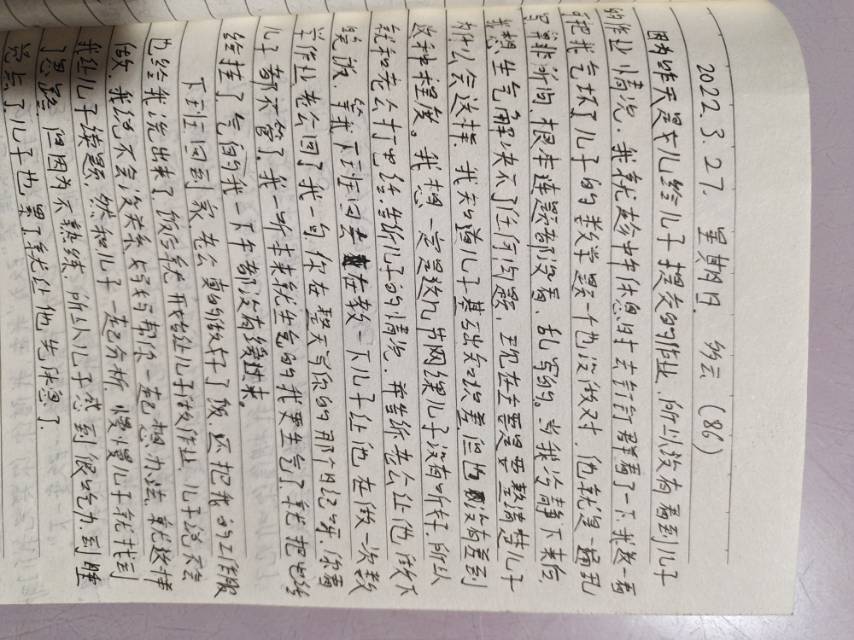 2022.3.27. 星期日. 多云 (86)
因为昨天是女儿给儿子提交的作业, 所以没有看到儿子
的作业情况. 我就趁中午休息时去钉钉群看了一下. 我数一看
可把我气坏了儿子的数学题一个也没做对. 他就是一通乱
写非所问. 根本连题都没看, 乱写的。当我冷静下来后
我想生气解决不了任何问题. 现在主要是要整清楚儿子
为什么会这样. 我知道儿子基础知识差但也没有差到
这种程度。我想一定是这几节网课儿子没有听好. 所以
就和老公打电话. 告诉儿子的情况. 并告诉老公让他做下
晚饭. 等我下班回去在教一下儿子让他在做一次数
学作业老公回了我一句你在整天写你的那个日记呀. 你看
儿子都不管了. 我一听本来就生气的我更生气了就把电话
给挂了气的我一下午都没有缓过来。
下班回到家老公真的做好了饭. 还把我的工作服
也给我洗出来了. 饭后就开始让儿子做作业. 儿子说不会
做. 我说不会没关系妈妈帮你一起想办法. 就这样
我让儿子读题, 然和儿子一起分析. 慢慢儿子就找到
了思路. 但因为不熟练. 所以儿子感到很吃力. 到睡
觉点了儿子也累了就让他先休息了.